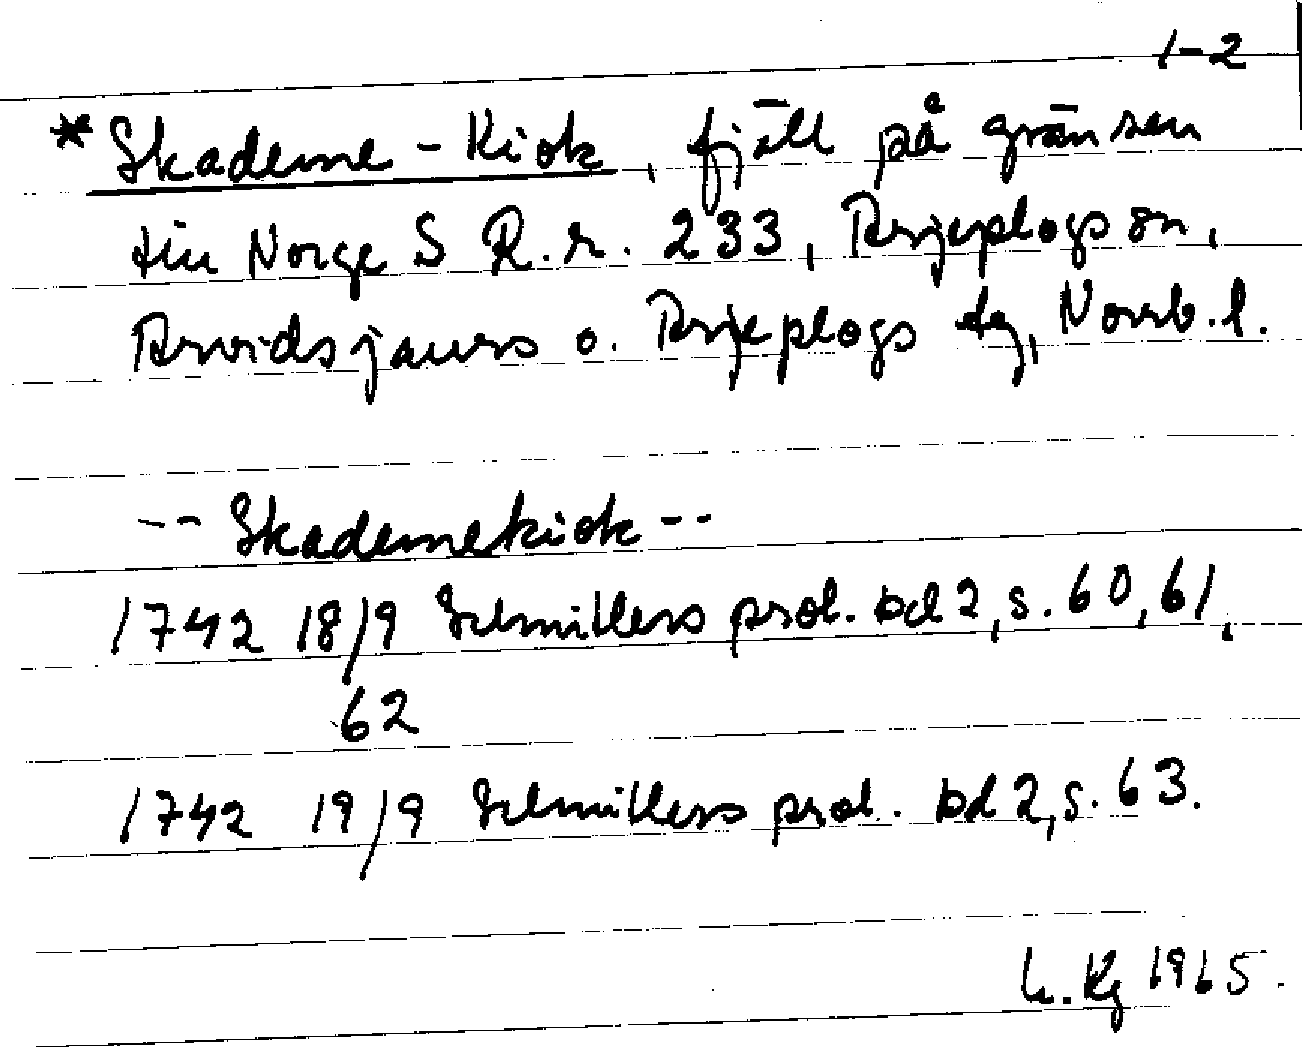 1-2
*Skademe-Kiok, fjäll på gränsen
till Norge S R.r. 233, Arjeplogs sn,
Arvidsjaurs o. Arjeplogs tg, Norrb.l.
-- Skademekiok --
1742 18/9 Schnitlers prot. bd 2, s. 60, 61,
62
1742 19/9 Schnitlers prot. bd 2, s. 63.
1965.